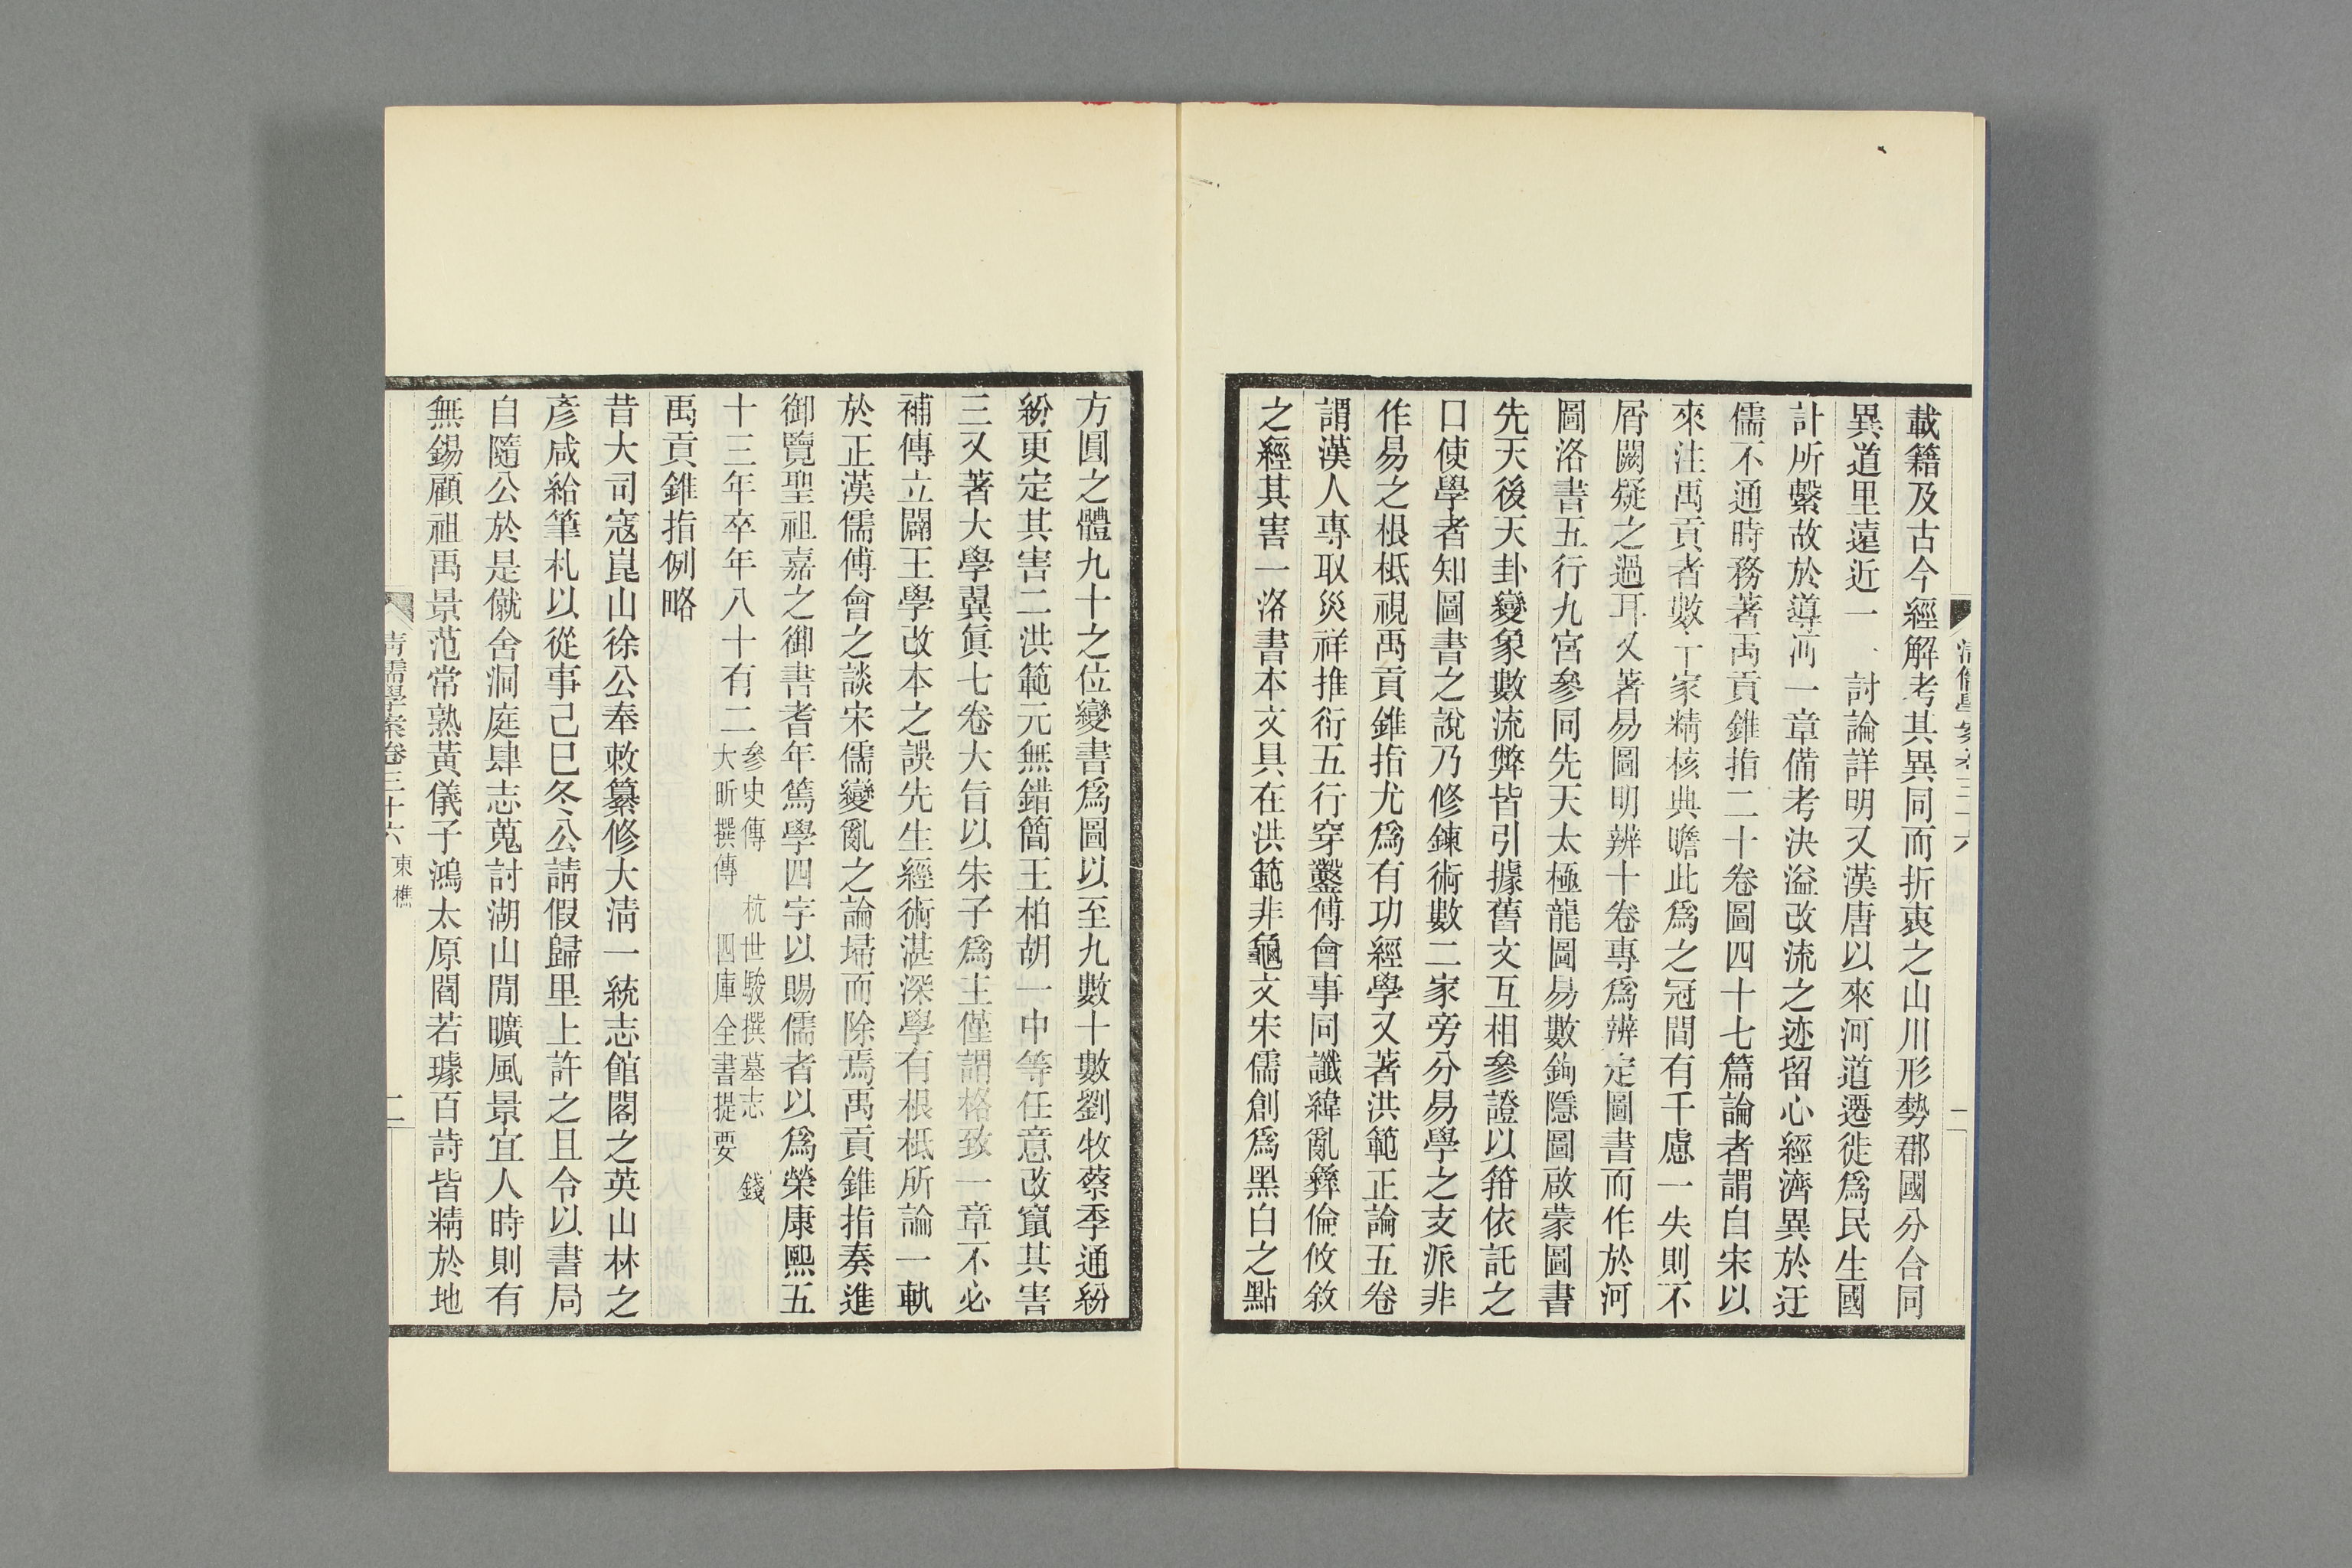 載籍及古今經解考其異同而折衷之山川形勢郡國分合同
異道里遠近一一討論詳明又漢唐以來河道遷徙爲民生國
計所繫故於導河一章備考決溢改流之迹留心經濟異於迂
儒不通時務著禹貢錐指二十卷圖四十七篇論者謂自宋以
來注禹貢者數十家精核典贍此爲之冠間有千慮一失則不
屑闕疑之過耳又著易圖明辨十卷專爲辨定圖書而作於河
圖洛書五行九宮參同先天太極龍圖易數鉤隱圖啟蒙圖書
先天後天卦變象數流弊皆引據舊文互相參證以箝依託之
口使學者知圖書之說乃修鍊術數二家旁分易學之支派非
作易之根柢視禹貢錐指尤爲有功經學又著洪範正論五卷
謂漢人專取災祥推衍五行穿鑿傅會事同讖緯亂彝倫攸敘
之經其害一洛書本文具在洪範非龜文宋儒創爲黑白之點
清儒學案卷三十六
二
方圓之體九十之位變書爲圖以至九數十數劉牧蔡季通紛
紛更定其害二洪範元無錯簡王柏胡一中等任意改竄其害
三又著大學翼眞七卷大旨以朱子爲主僅謂格致一章不必
補傳立闢王學改本之誤先生經術湛深學有根柢所論一軌
於正漢儒傅會之談宋儒變亂之論埽而除焉禹貢錐指奏進
御覽聖祖嘉之御書耆年篤學四字以賜儒者以爲榮康熙五
十三年卒年八十有二
參史傳　杭世駿撰墓志　錢
大昕撰傳　四庫全書提要
禹貢錐指例略
昔大司寇崑山徐公奉敕纂修大淸一統志館閣之英山林之
彥咸給筆札以從事己巳冬公請假歸里上許之且令以書局
自隨公於是僦舍洞庭肆志蒐討湖山閒曠風景宜人時則有
無錫顧祖禹景范常熟黃儀子鴻太原閻若璩百詩皆精於地
清儒學案卷三十六　東樵
二